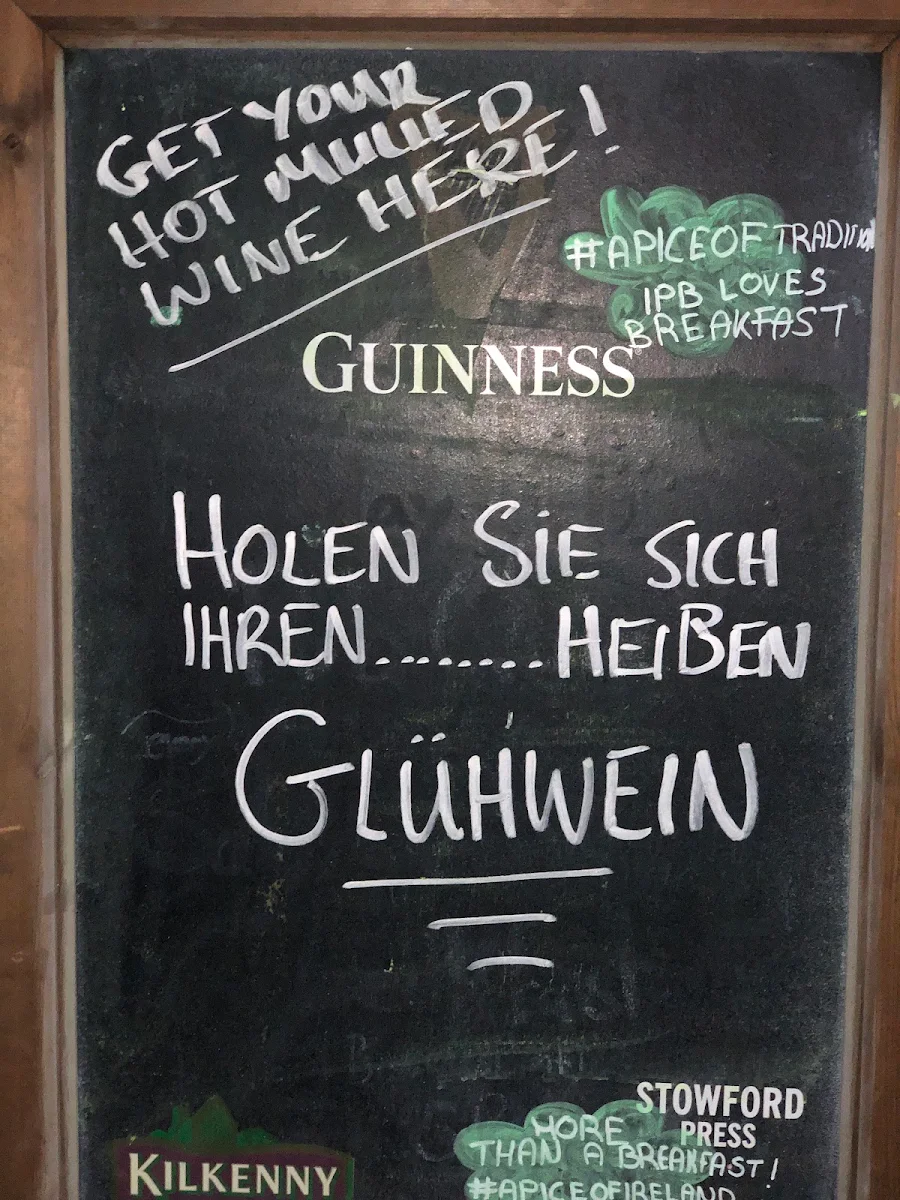 GET YOUR
HOT MULLED
WINE HERE!
#APICEOFTRADITION
IPB LOVES
BREAKFAST
GUINNESS
HOLEN SIE SICH
IHREN........HEIßEN
GLÜHWEIN
STOWFORD
PRESS
MORE
THAN A BREAKFAST!
#APICEOFIRELAND
KILKENNY